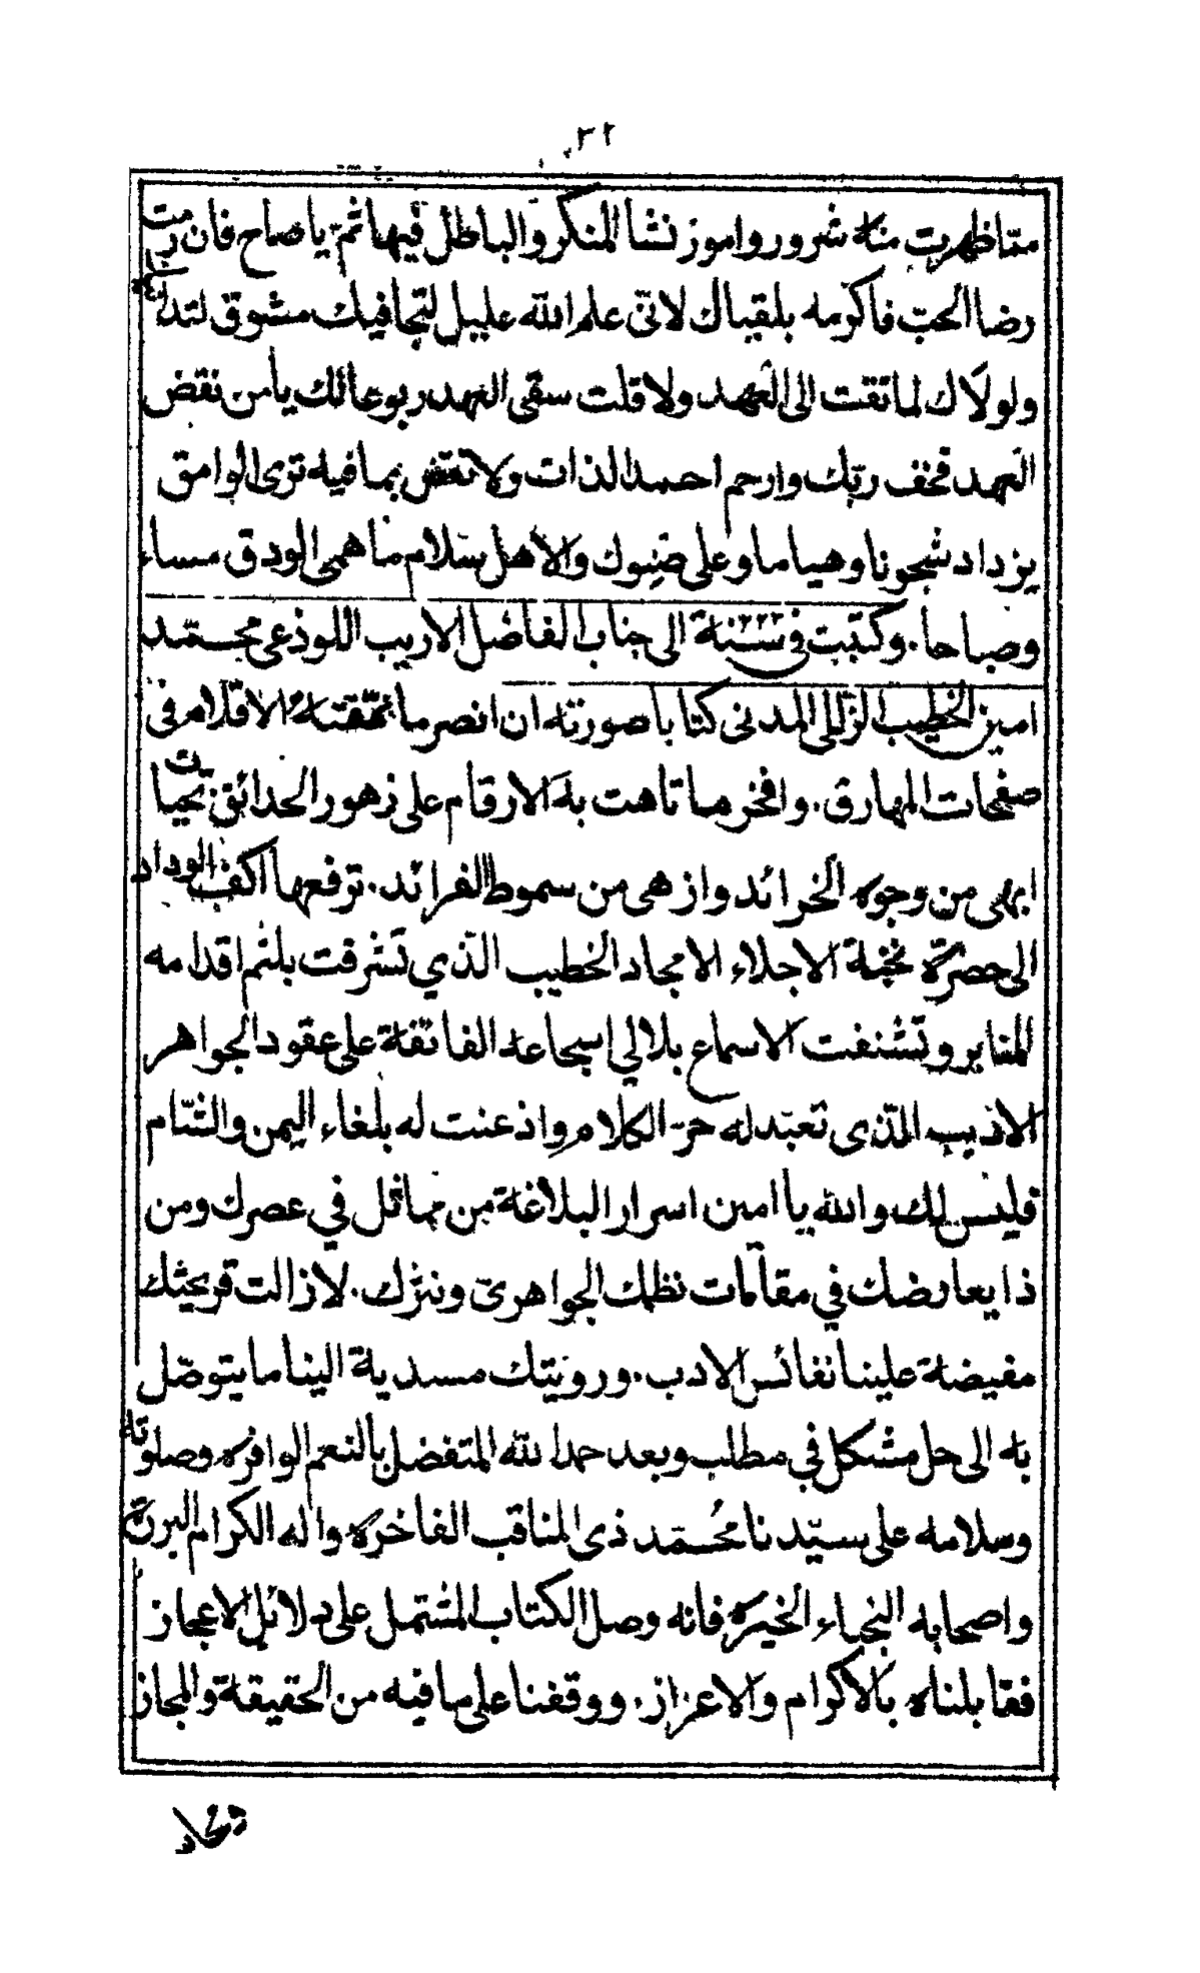 ٣٢
ممّا ظهرت منه شرور وامور نشا المنكر والباطل فيها ثمّ يا صاح فان رمت
رضا الحبّ فاكرمه بلقياك لانّى علم الله عليل لتجافيك مشوق لتدانيك
ولولاك لما تقت الى العهد ولا قلت سقى العهد ربوعا لك يا من نقض
العهد فخف ربّك وارحم احمد الذات ولا تنقض بما فيه ترى الوامق
يزداد شجونا وهياما وعلى صنوك والاهل سلام ما همى الودق مساء
وصباحا. وكتبت فى سنة ١٢٢٢ الى جناب الفاضل الاريب اللوذعى محمّد
امين الخطيب الزللى المدنى كتابا صورته ان انصر ما نمّقته الاقلام فى
صفحات المهارق. وافخر ما تاهت به الارقام على زهور الحدائق تحيّات
ابهى من وجوه الخرائد وازهى من سموط الفرائد. ترفعها اكفّ الوداد
الى حضرة نخبة الاجلاء الامجاد الخطيب الّذي تشرقت بلثم اقدامه
المنابر وتشنفت الاسماع بلالي اسجاعه الفائقة على عقود الجواهر
الاديب الّذى تعبّد له حرّ الكلام واذعنت له بلغاء اليمن والشّام
فليس لك والله يا امين اسرار البلاغة من مماثل في عصرك ومن
ذا يعارضك في مقالات نظمك الجواهرىّ ونثرك. لا زالت قريحتك
مفيضة علينا نفائس الادب. ورويّتك مسدية الينا ما يتوصّل
به الى حل مشكل في مطلب وبعد حمدا لله المتفضل بالنعم الوافره وصلوته
وسلامه على سيّدنا محمّد ذى المناقب الفاخره واله الكرام البررة
واصحابه النجباء الخيره فانه وصل الكتاب المشتمل على دلائل الاعجاز
فقابلناه بالاكرام والاعزاز. ووقفنا على ما فيه من الحقيقة والمجاز